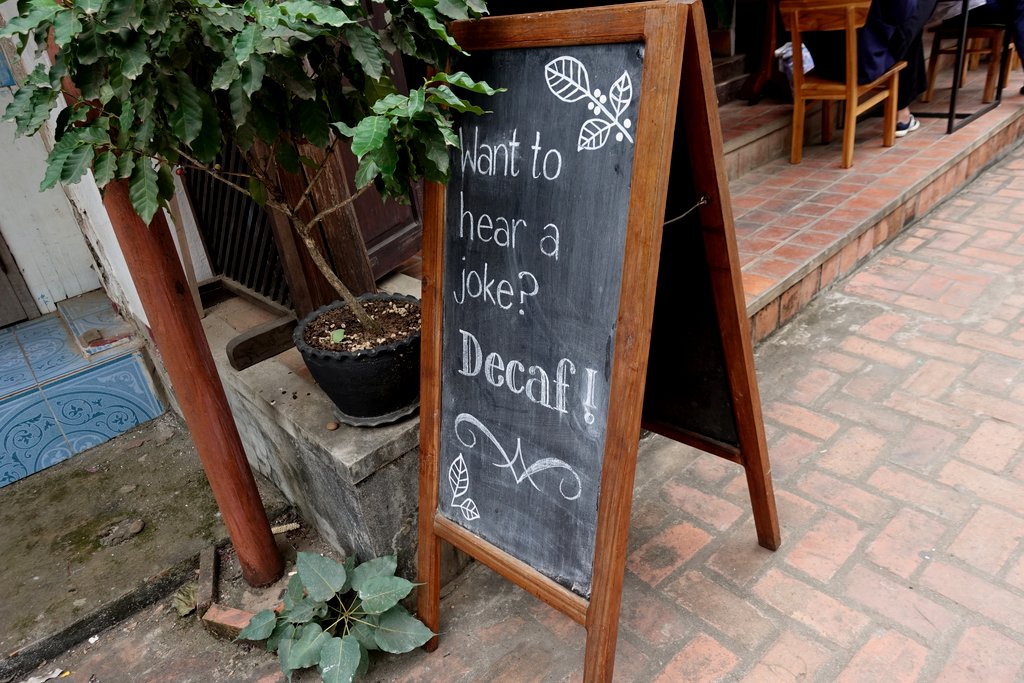 Want to
hear a
joke?
Decaf!